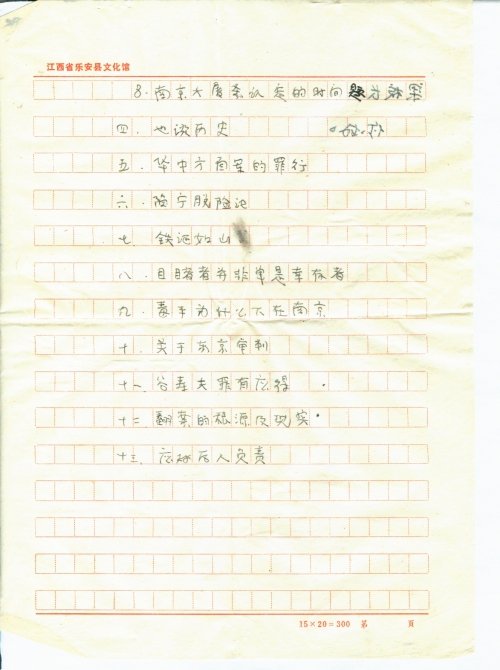 江西省乐安县文化馆
8.南京大屠杀认定的时间 为
四、也谈历史
五、华中方面军的罪行
六、陷宁脱险记
七、铁证如山
八、目睹者并非单是幸存者
九、毒手为什么下在南京
十、关于东京审判
十一、谷寿夫罪有应得
十二、翻案的根源及现实
十三、应对后人负责
15×20=300 第 页